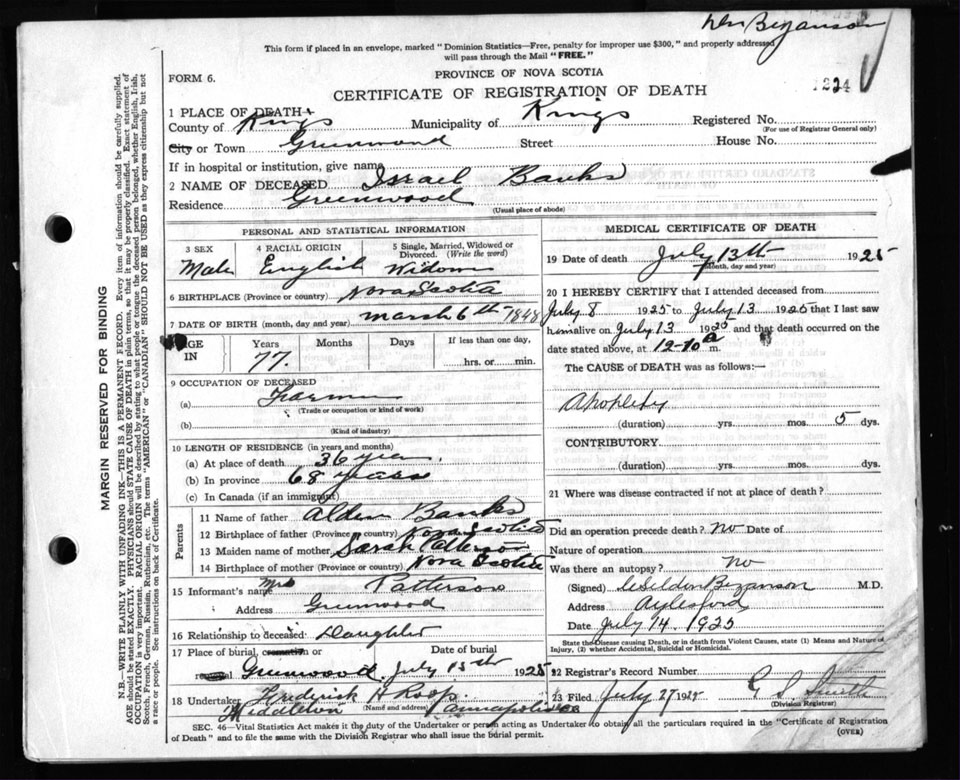 Bezanson
This form if placed in an envelope, marked "Dominion Statistics—Free, penalty for improper use $300," and properly addressed
will pass through the Mail "FREE."
PROVINCE OF NOVA SCOTIA
FORM 6.
CERTIFICATE OF REGISTRATION OF DEATH
1224
MARGIN RESERVED FOR BINDING
N.B.—WRITE PLAINLY WITH UNFADING INK—THIS IS A PERMANENT RECORD. Every item of information should be carefully supplied.
AGE should be stated EXACTLY. PHYSICIANS should STATE CAUSE OF DEATH in plain terms, so that it may be properly classified. Exact statement of
OCCUPATION is very important. RACIAL ORIGIN will be described by stating to what people or tongue the deceased person belonged, whether English, Irish,
Scotch, French, German, Russian, Ruthenian, etc. The terms "AMERICAN" or "CANADIAN" SHOULD NOT BE USED as they express citizenship but not
a race or people. See instructions on back of Certificate.
1 PLACE OF DEATH
County of Kings Municipality of Kings Registered No.
(For use of Registrar General only)
City or Town Greenwood Street House No.
If in hospital or institution, give name
2 NAME OF DECEASED Israel Banks
Residence Greenwood
(Usual place of abode)
PERSONAL AND STATISTICAL INFORMATION
3 SEX 4 RACIAL ORIGIN 5 Single, Married, Widowed or
Divorced. (Write the word)
Male English Widow
6 BIRTHPLACE (Province or country) Nova Scotia
7 DATE OF BIRTH (month, day and year) March 6th 1848
AGE IN Years Months Days If less than one day,
77 hrs. or min.
9 OCCUPATION OF DECEASED
(a) Farmer
(Trade or occupation or kind of work)
(b)
(Kind of industry)
10 LENGTH OF RESIDENCE (in years and months)
(a) At place of death 36 years
(b) In province 68 years
(c) In Canada (if an immigrant)
Parents
11 Name of father Alden Banks
12 Birthplace of father (Province or country) Nova Scotia
13 Maiden name of mother Sarah Patterson
14 Birthplace of mother (Province or country) Nova Scotia
15 Informant's name Mrs Patterson
Address Greenwood
16 Relationship to deceased Daughter
17 Place of burial, cremation or Date of burial
removal Greenwood July 15th 1925
18 Undertaker Frederick H Roop
Middleton (Name and address) Annapolis
MEDICAL CERTIFICATE OF DEATH
19 Date of death July 13th 1925
(Month, day and year)
20 I HEREBY CERTIFY that I attended deceased from
July 8 1925 to July 13 1925 that I last saw
him alive on July 13 1925 and that death occurred on
date stated above, at 12-10 a m.
The CAUSE OF DEATH was as follows:—
Apoplexy
(duration) yrs. mos. 5 dys.
CONTRIBUTORY
(duration) yrs. mos. dys.
21 Where was disease contracted if not at place of death?
Did an operation precede death? no Date of
Nature of operation
Was there an autopsy? no
(Signed) Weldon Bezanson M.D.
Address Aylesford
Date July 14. 1925
State the Disease causing Death, or in death from Violent Causes, state (1) Means and Nature of
Injury, (2) whether Accidental, Suicidal or Homicidal.
22 Registrar's Record Number
23 Filed July 27 1925 G S Smith
(Division Registrar)
SEC. 46—Vital Statistics Act makes it the duty of the Undertaker or person acting as Undertaker to obtain all the particulars required in the "Certificate of Registration
of Death" and to file the same with the Division Registrar who shall issue the burial permit. (OVER)